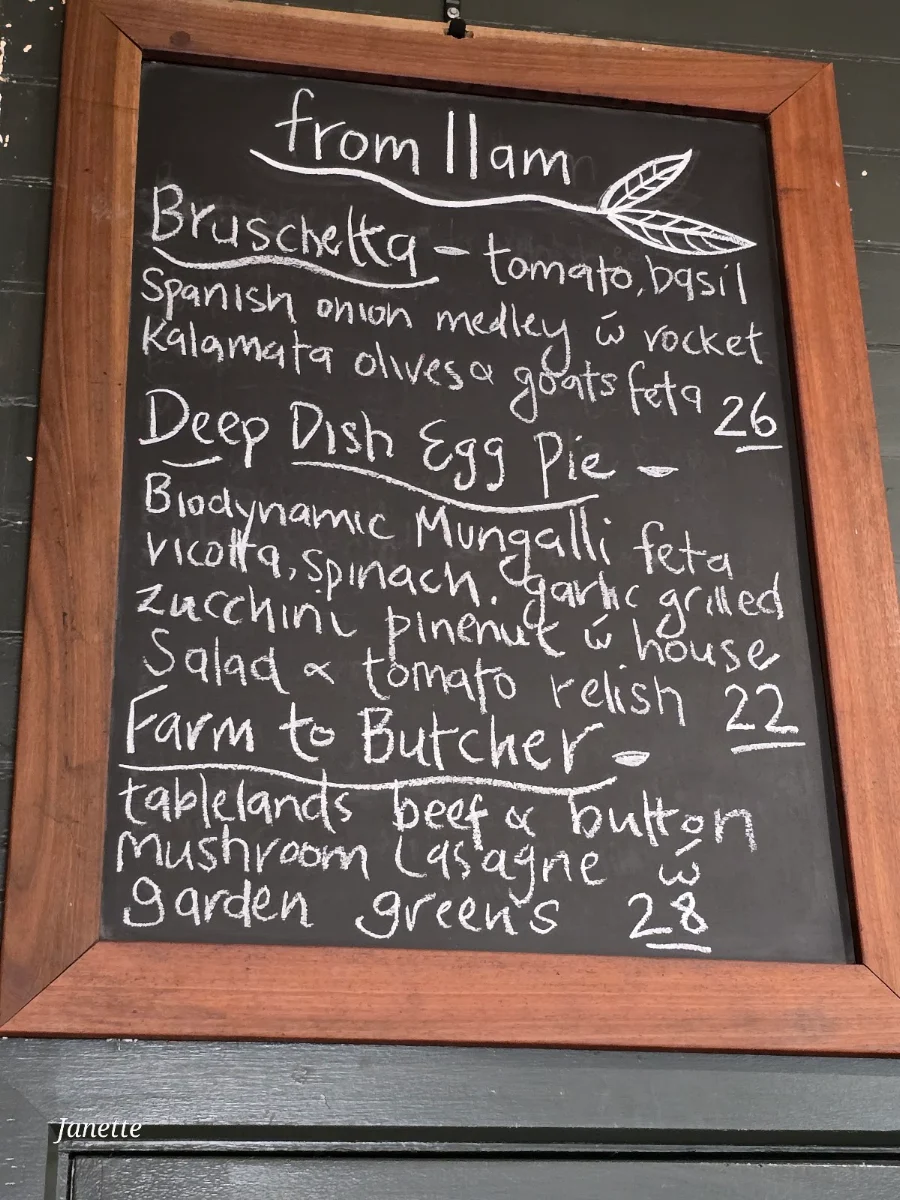 from 11am
Bruschetta - tomato, basil
Spanish onion medley w rocket
Kalamata olives & goats feta 26
Deep Dish Egg Pie -
Biodynamic Mungalli feta
ricotta, spinach. garlic grilled
zucchini pinenut w house
Salad & tomato relish 22
Farm to Butcher -
tablelands beef & button
Mushroom Lasagne w
garden greens 28
Janette